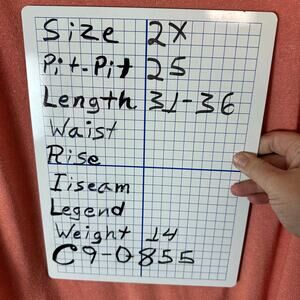 Size 2X
Pit-Pit 25
Length 31-36
Waist
Rise
Iiseam
Legend
Weight 14
C9-0855